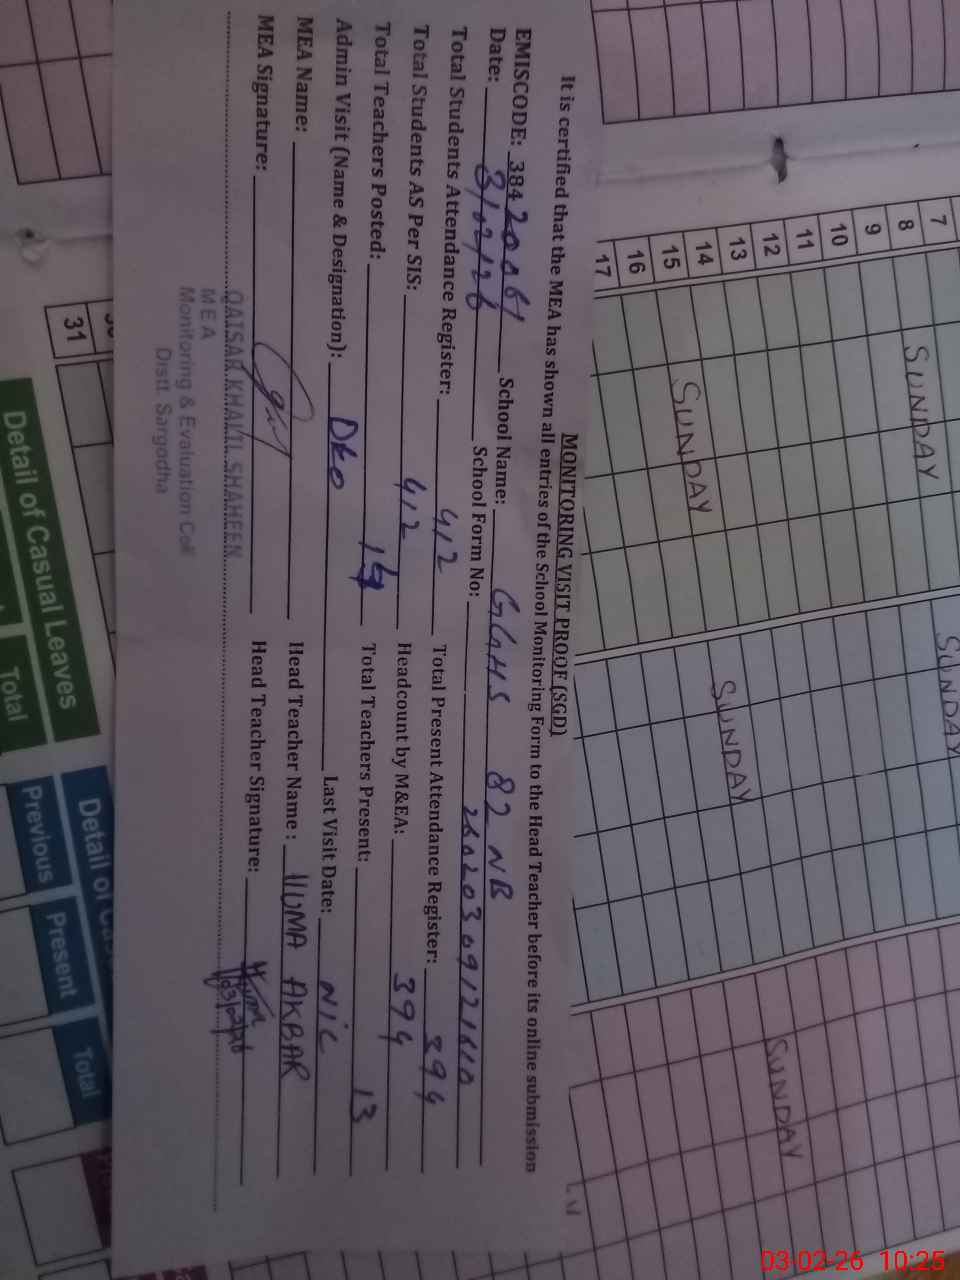 MONITORING VISIT PROOF (SGD)
It is certified that the MEA has shown all entries of the School Monitoring Form to the Head Teacher before its online submission
EMISCODE: 38420061 School Name: GGHS 82 NB
Date: 3/02/26 School Form No:
Total Students Attendance Register: 412 Total Present Attendance Register: 394
Total Students AS Per SIS: 412 Headcount by M&EA: 394
Total Teachers Posted: Total Teachers Present: 13
Admin Visit (Name & Designation): Last Visit Date:
MEA Name: Head Teacher Name : HUMA AKBAR
MEA Signature: Head Teacher Signature:
QAISAR KHALIL SHAHEEN
MEA
Monitoring & Evaluation Cell
Distt. Sargodha
7
8
9
10
11
12
13
14
15
16
17
SUNDAY
SUNDAY
SUNDAY
SUNDAY
SUNDAY
31
Detail of Casual Leaves
Total
Detail of
Previous
Present
Total
03-02-26 10:25